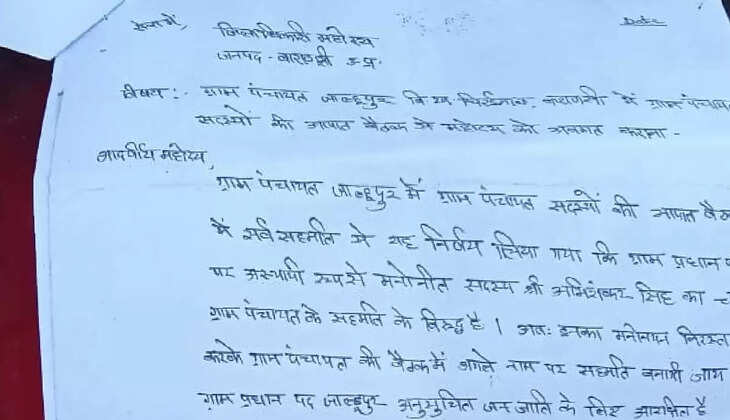 सेवा में,
Date
जिलाधिकारी महोदय
जनपद - वाराणसी उ.प्र.
विषय :- ग्राम पंचायत जाल्हूपुर वि.ख. चिरईगांव, वाराणसी में ग्राम पंचायत
सदस्यों की आपात बैठक से महोदय को अवगत कराना -
आदरणीय महोदय,
ग्राम पंचायत जाल्हूपुर में ग्राम पंचायत सदस्यों की आपात बैठ
में सर्व सहमति से यह निर्णय लिया गया कि ग्राम प्रधान प
पर अस्थायी रूप से मनोनीत सदस्य श्री अमिशंकर सिंह का च
ग्राम पंचायत के सहमति के विरुद्ध है । अतः इनका मनोनयन निरस्त
करके ग्राम पंचायत की बैठक में अगले नाम पर सहमति बनायी जाय
ग्राम प्रधान पद जाल्हूपुर अनुसुचित जन जाति के लिए आरक्षित है